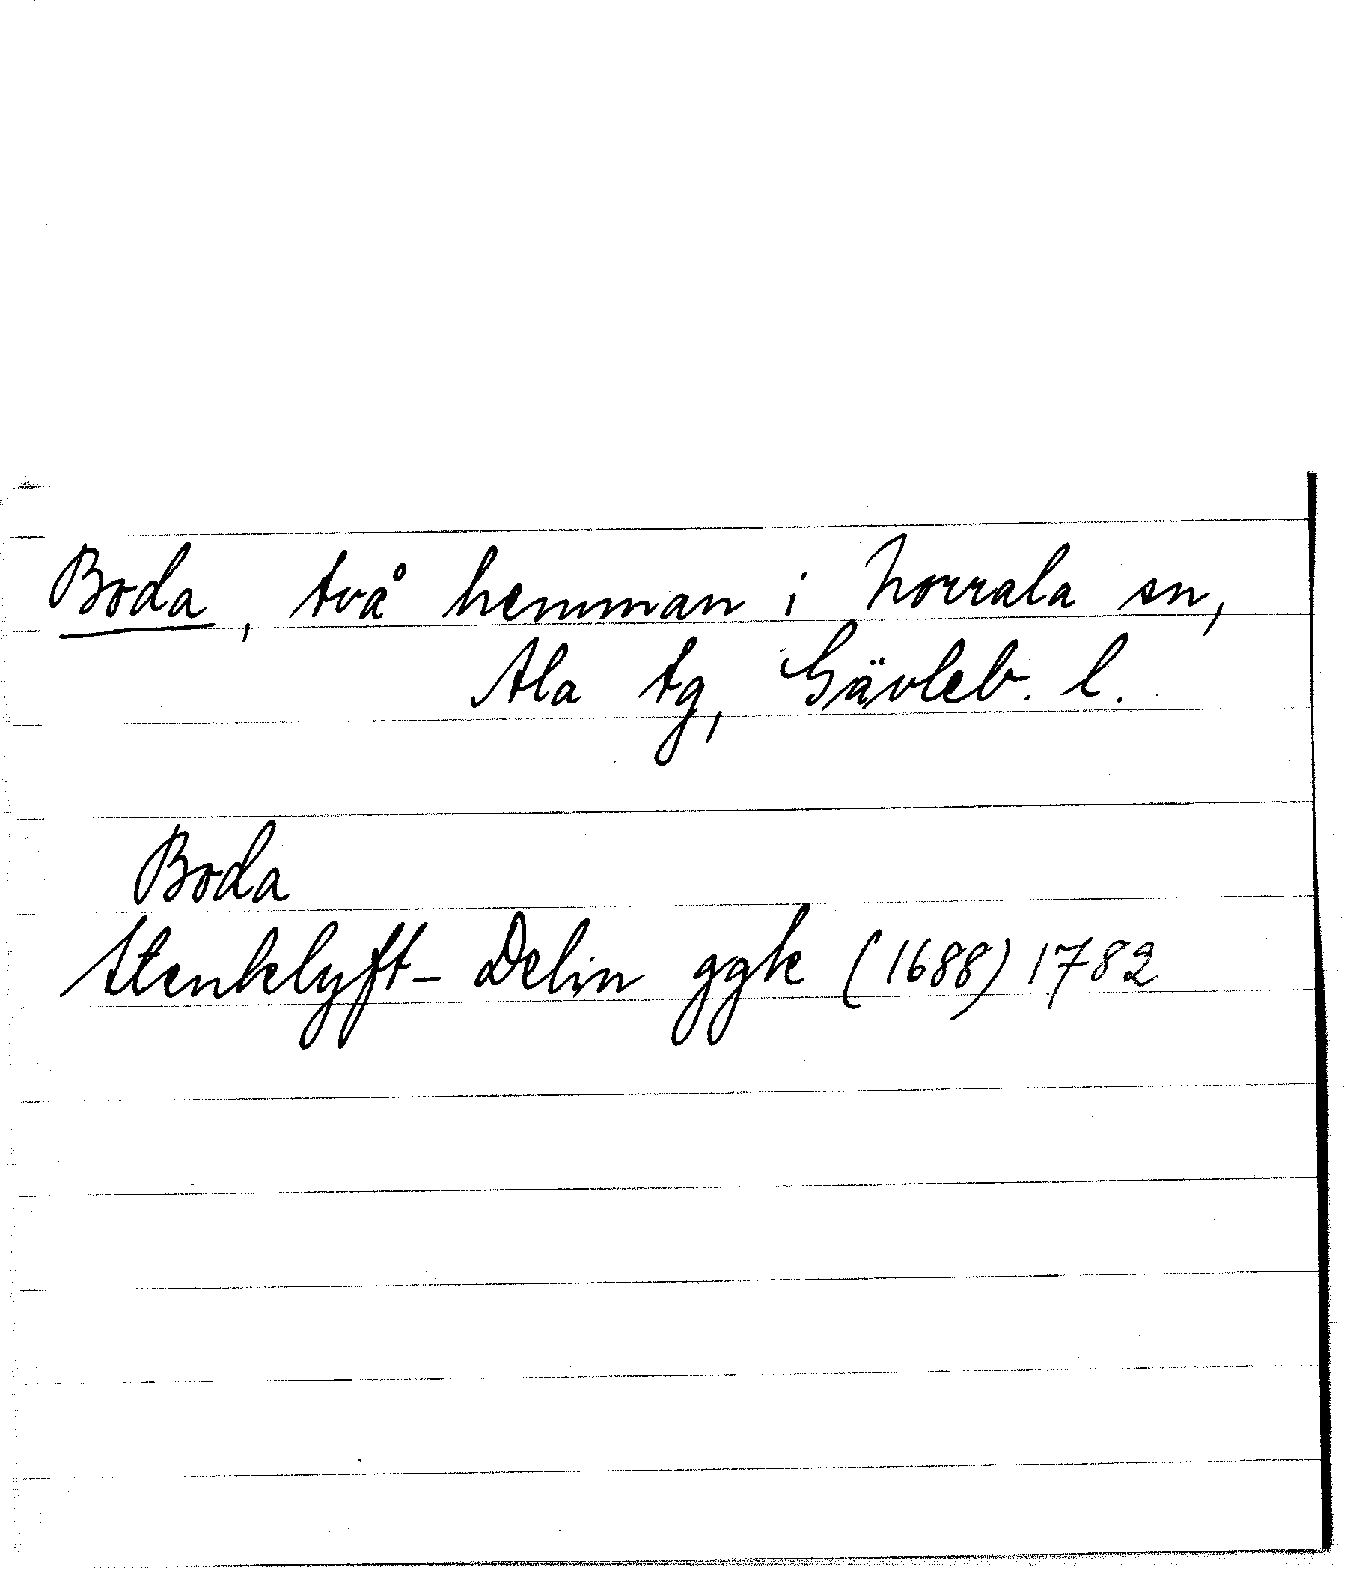 Boda, två hemman i Norrala sn,
Ala tg, Gävleb. l.
Boda
Stenklyft- Delin ggk (1688) 1782